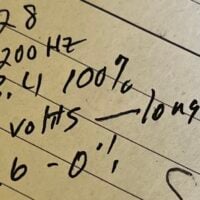 28
200 Hz
.4 100%
volts — long
.6 - 0%